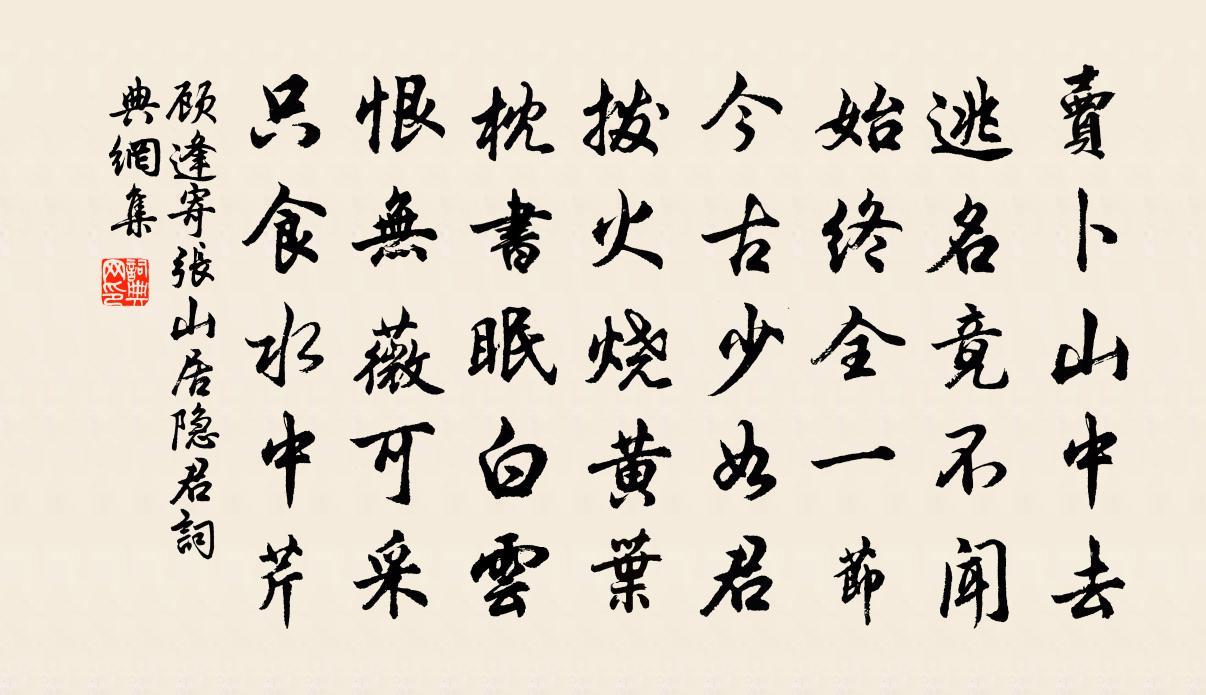 賣卜山中去
逃名竟不闻
始终全一節
今古少如君
拨火烧黄葉
枕書眠白雲
恨無薇可采
只食水中芹
顾逢寄張山居隐君詞
典網集
詞典
网印